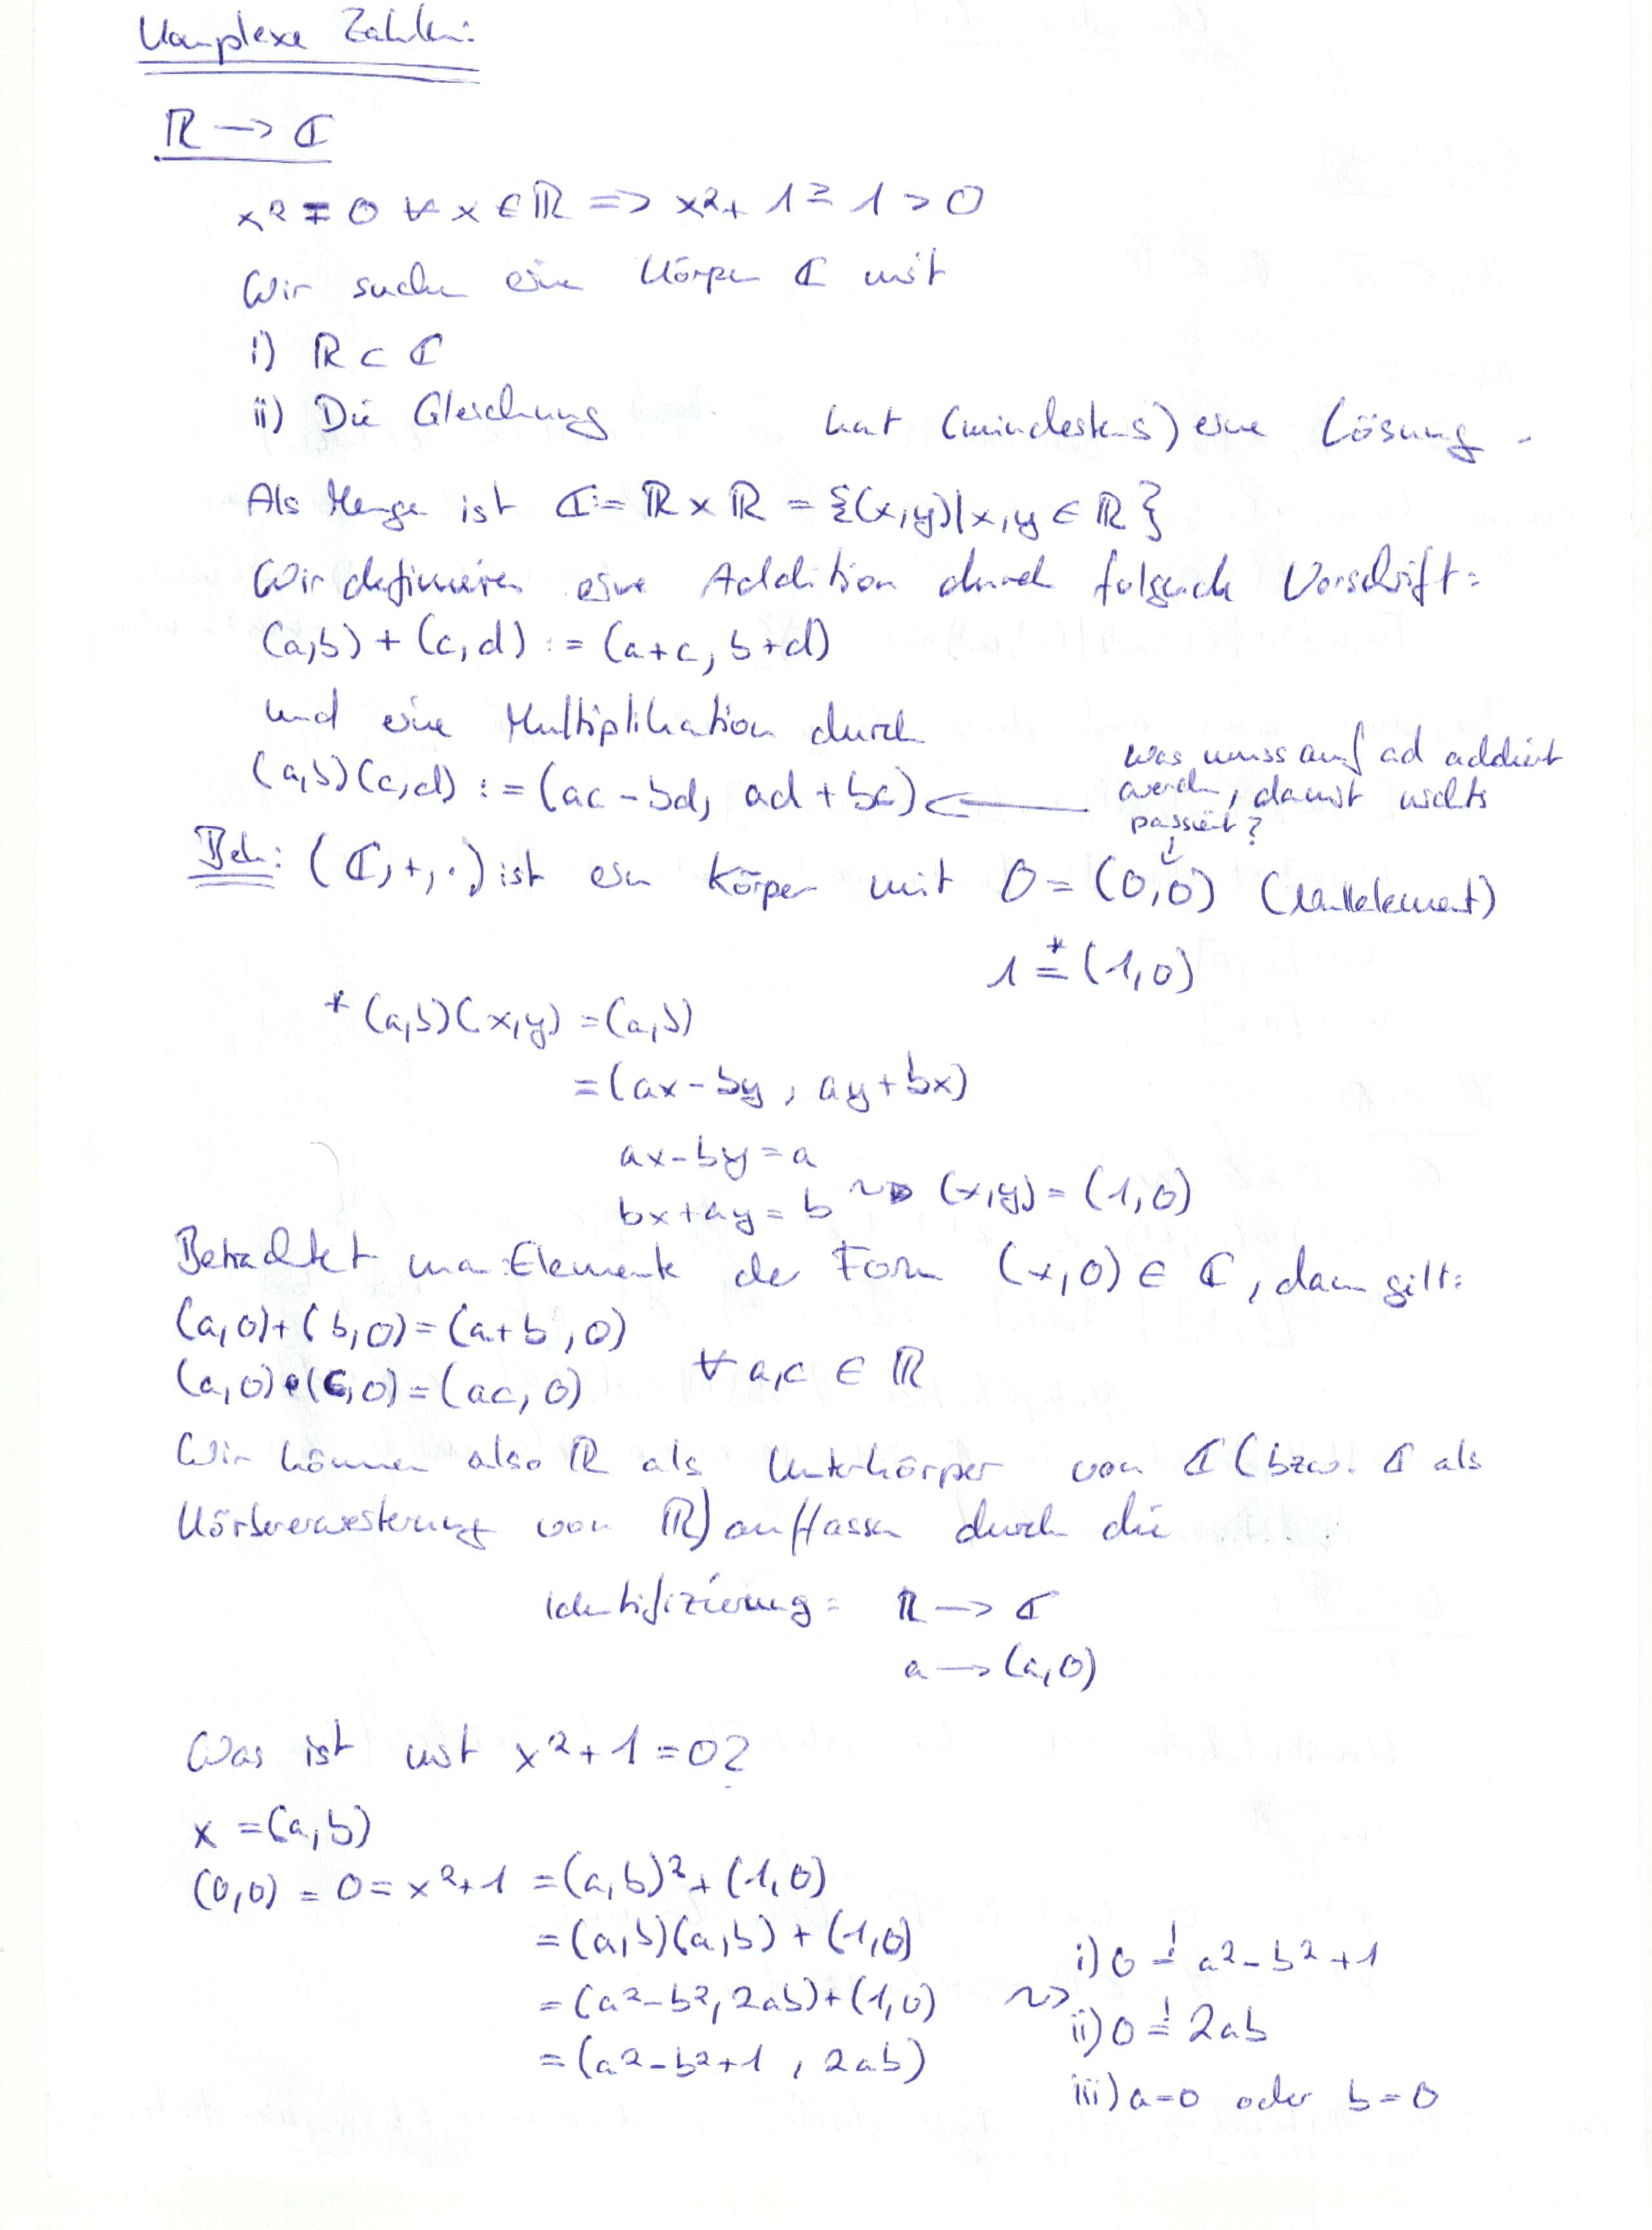 Komplexe Zahlen:
ℝ → ℂ
x² ≧ 0 ∀ x ∈ ℝ => x² + 1 ≥ 1 > 0
Wir suchen eine Körper ℂ mit
i) ℝ ⊂ ℂ
ii) Die Gleichung hat (mindestens) eine Lösung.
Als Menge ist ℂ := ℝ × ℝ = {(x,y)|x,y ∈ ℝ}
Wir definieren eine Addition durch folgende Vorschrift:
(a,b) + (c,d) := (a+c, b+d)
und eine Multiplikation durch
(a,b)(c,d) := (ac - bd, ad + bc) ←
was muss auf ad addiert
werden, damit nichts
passiert?
↓
Beh: (ℂ,+,·) ist ein Körper mit 0 = (0,0) (Nullelement)
1 =* (1,0)
* (a,b)(x,y) = (a,b)
= (ax - by, ay + bx)
ax - by = a
bx + ay = b ⇝ (x,y) = (1,0)
Betrachtet man Elemente der Form (x,0) ∈ ℂ, dann gilt:
(a,0) + (b,0) = (a+b, 0)
(a,0)•(c,0) = (ac, 0) ∀ a,c ∈ ℝ
Wir können also ℝ als Unterkörper von ℂ (bzw. ℂ als
Körpererweiterung von ℝ) auffassen durch die
Identifizierung: ℝ → ℂ
a → (a,0)
Was ist mit x² + 1 = 0?
x = (a,b)
(0,0) = 0 = x² + 1 = (a,b)² + (1,0)
= (a,b)(a,b) + (1,0)
= (a² - b², 2ab) + (1,0)
= (a² - b² + 1, 2ab)
⇝ i) 0 =! a² - b² + 1
ii) 0 =! 2ab
iii) a = 0 oder b = 0